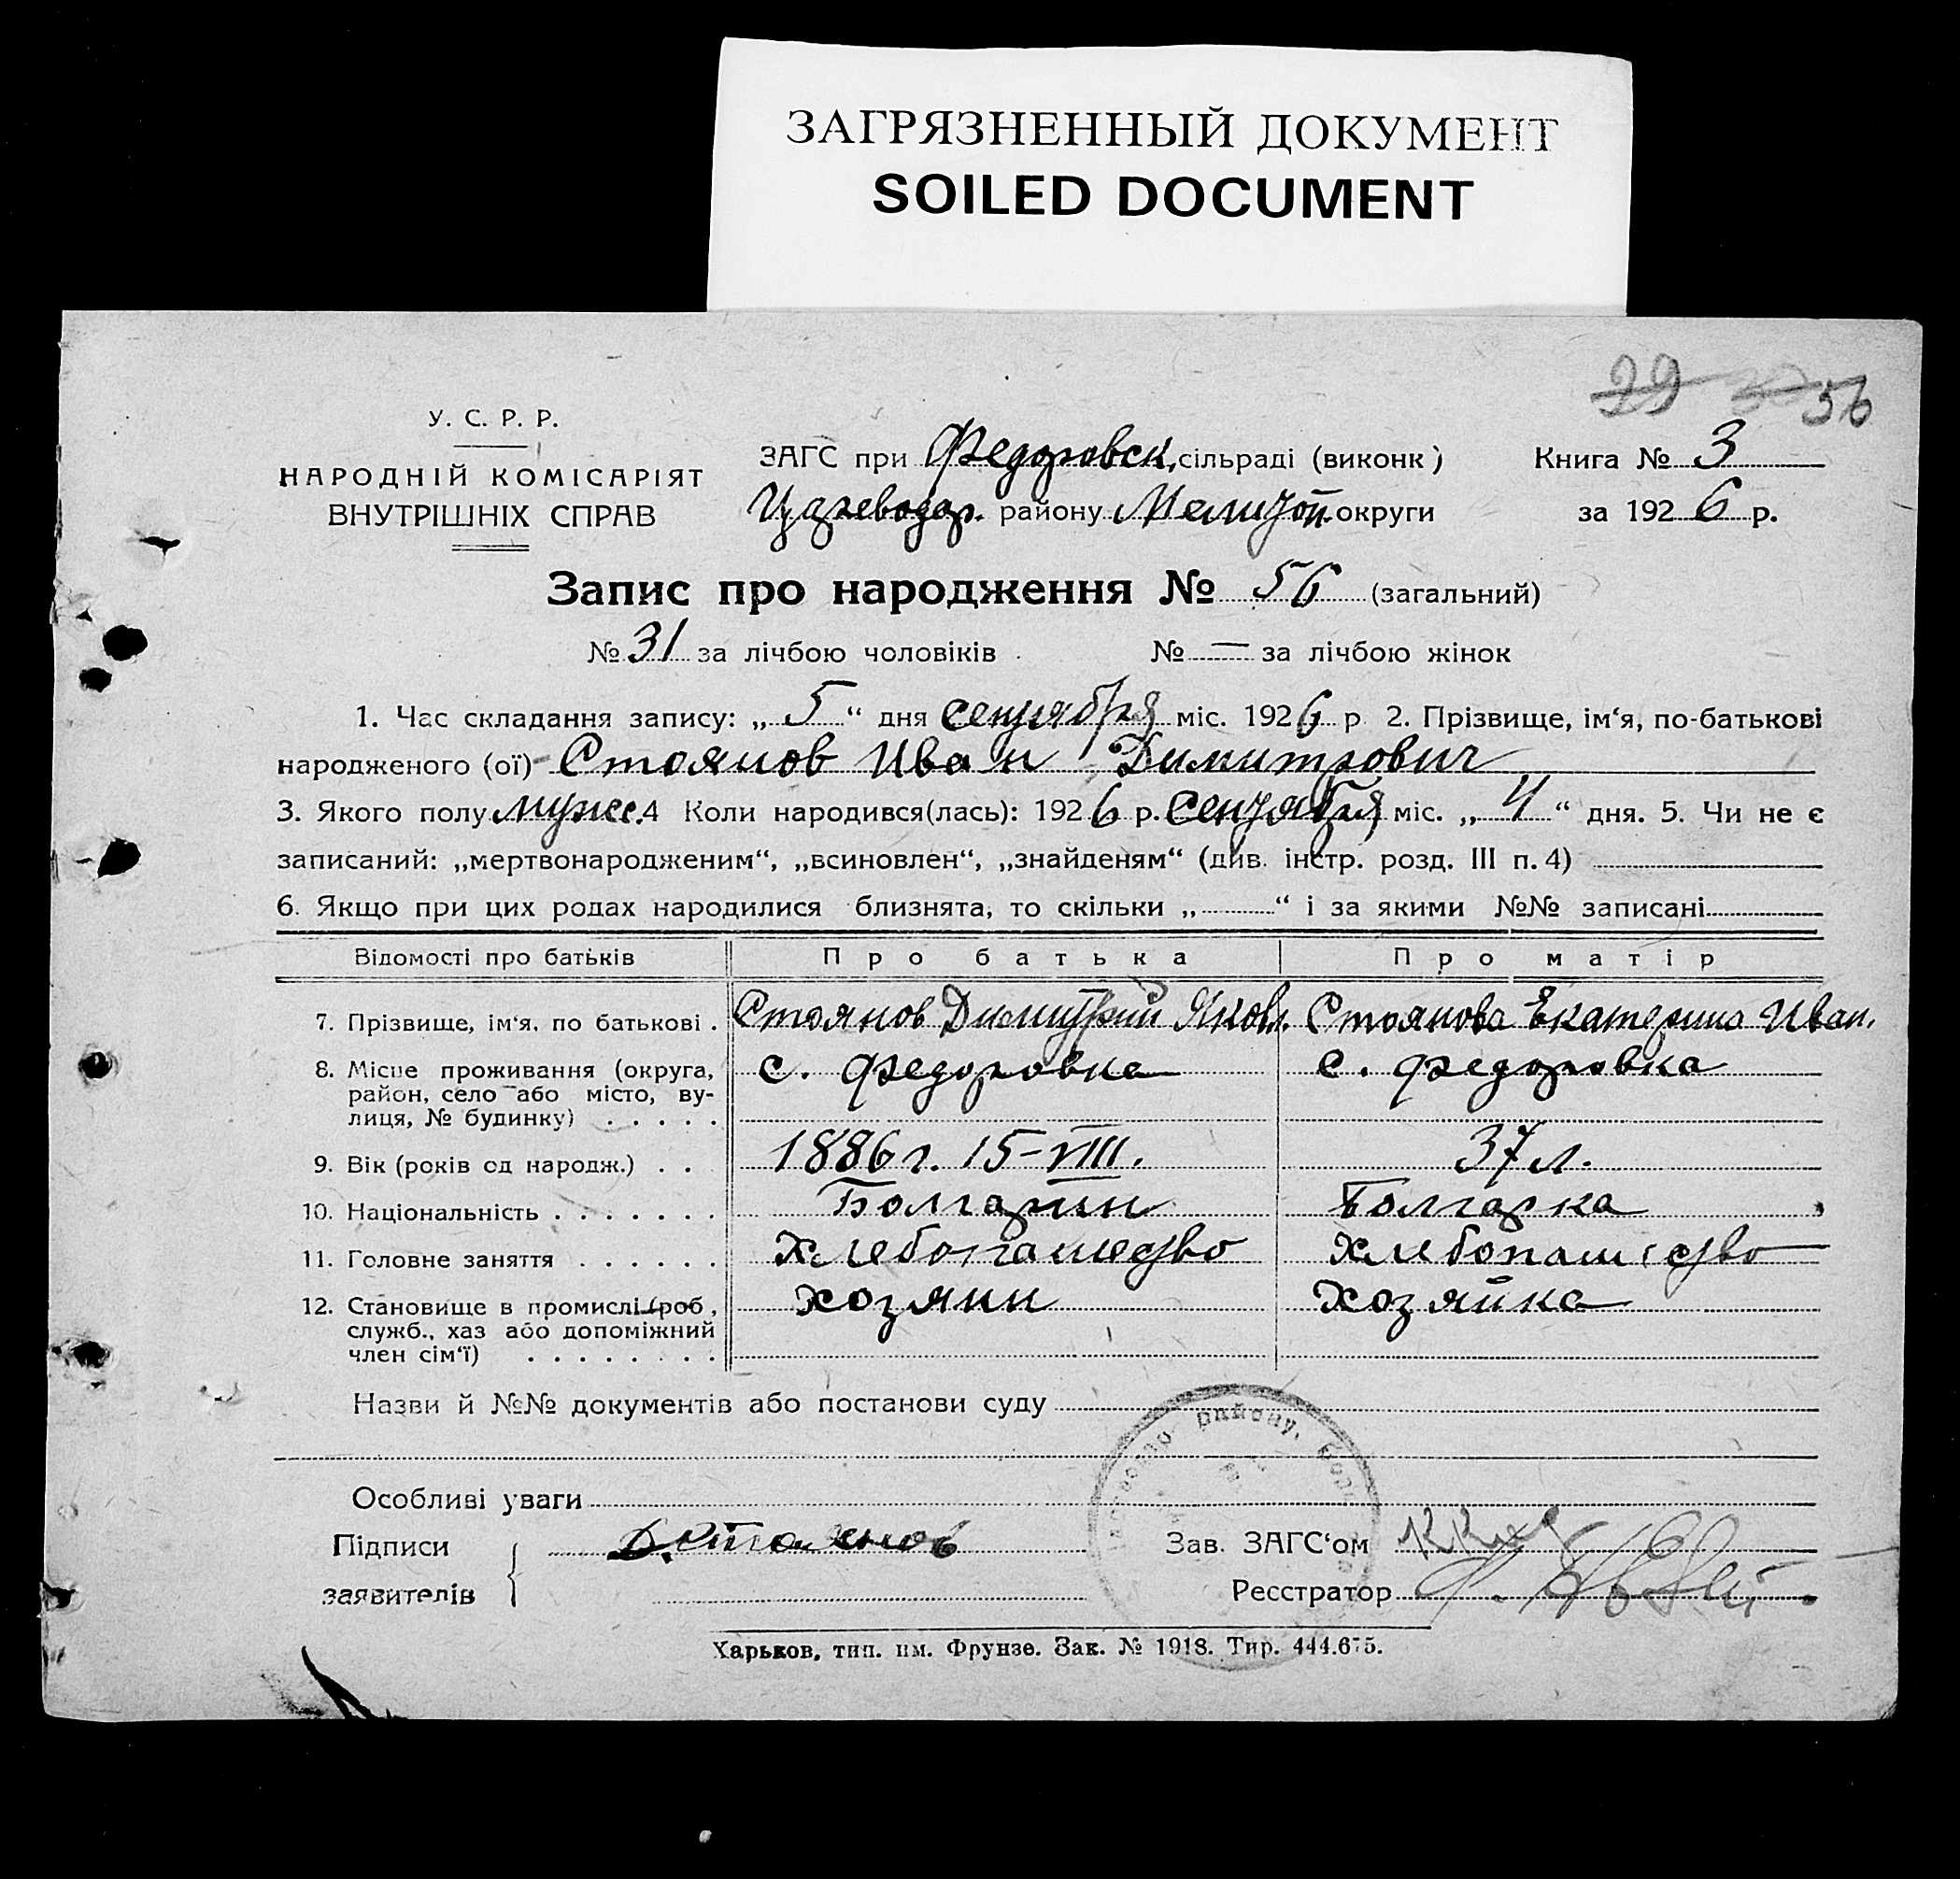 ЗАГРЯЗНЕННЫЙ ДОКУМЕНТ
SOILED DOCUMENT
29 56
У. С. Р. Р.
НАРОДНІЙ КОМІСАРІЯТ
ВНУТРІШНІХ СПРАВ
ЗАГС при Федоровск. сільраді (виконк)
Цареводар. району Мелитоп. округи
Книга № 3
за 1926 р.
Запис про народження № 56 (загальний)
№ 31 за лічбою чоловіків № — за лічбою жінок
1. Час складання запису: „ 5 “ дня сентября міс. 1926 р 2. Прізвище, ім‘я, по-батькові
народженого (ої) Стоянов Иван Димитрович
3. Якого полу мужс. 4 Коли народився(лась): 1926 р. Сентября міс. „ 4 “ дня. 5. Чи не є
записаний: „мертвонародженим“, „всиновлен“, „знайденям“ (див. інстр. розд. III п. 4)
6. Якщо при цих родах народилися близнята, то скільки „ “ і за якими №№ записані
Відомості про батьків Про батька Про матір
7. Прізвище, ім‘я, по батькові . Стоянов Димитрий Яковл. Стоянова Екатерина Иван.
8. Місце проживання (округа, с. Федоровка с. Федоровка
район, село або місто, ву-
лиця, № будинку) . . . . .
9. Вік (років од народж.) . . 1886 г. 15-VIII. 37 л.
10. Національність . . . . . . . Болгарин Болгарка
11. Головне заняття . . . . . . Хлебопашество Хлебопашество
12. Становище в промислі (роб, хозяин Хозяйка
служб., хаз або допоміжний
член сім‘ї) . . . . . . . .
Назви й №№ документів або постанови суду
району,
Особливі уваги
Підписи
заявителів
Д. Стоянов
Зав. ЗАГС‘ом
Реєстратор
Харьков, тип. им. Фрунзе. Зак. № 1918. Тир. 444.675.